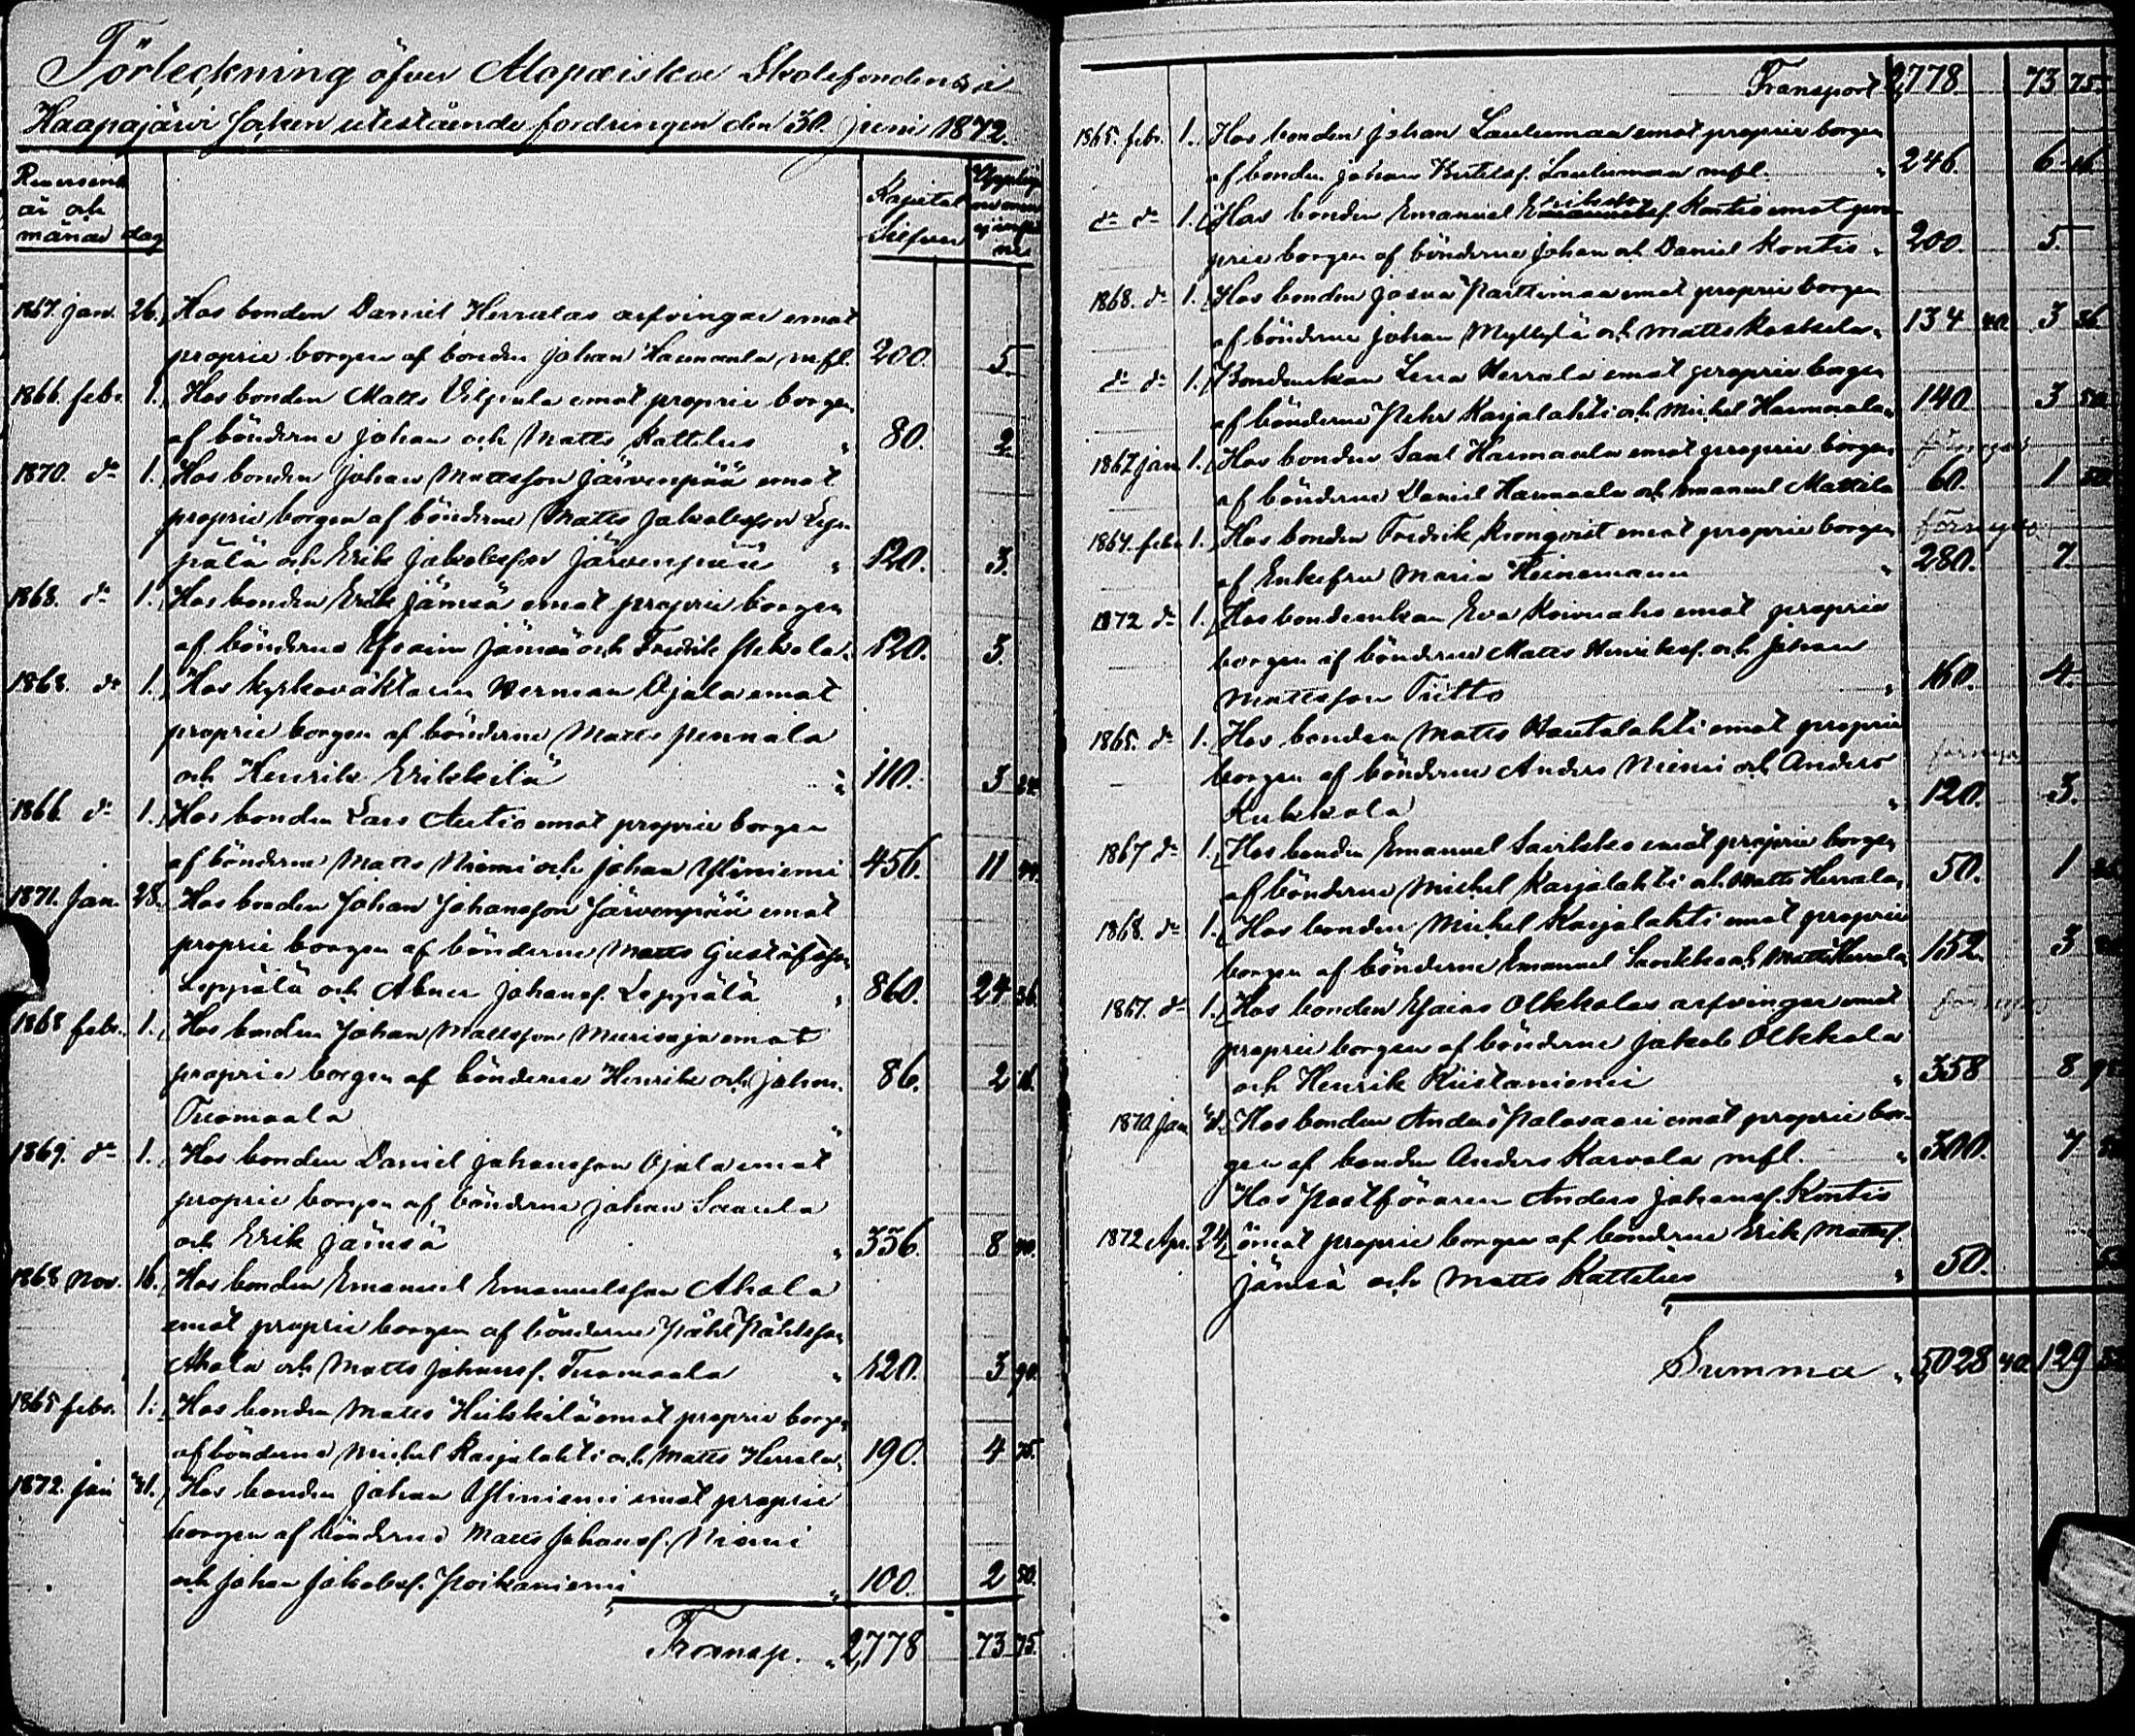 Förteckning öfver Alopæiska Skolefondens i
Haapajärvi Soken utestående fordringar den 30. Juni 1872.
Reversens
år och
månad dag
Kapital
Silfver
1867. jan. 26. Hos bonden Daniel Herralas arfvingar emot
proprie borgen af bonden Johan Haumaula m.fl. 200. 5.
1866. febr. 1. Hos bonden Matts Vilpula emot proprie borgen
af bönderne Johan och Matts Kattilus " 80. 2.
1870. do 1. Hos bonden Johan Mattsson Järvenpää emot
proprie borgen af bönderne Matts Jakobsson Lep-
pälä och Erik Jakobsson Järvenpää " 120. 3.
1868. do 1. Hos bonden Erik Jämsä emot proprie borgen
af bönderne Efraim Jämsä och Fredrik 120. 3.
1868. do 1. Hos kyrkoväktaren Herman Ojala emot
proprie borgen af bönderne Matts Pennala
och Henrik Erkkilä " 110. 3
1866. do 1. Hos bonden Lars Autio emot proprie borgen
af bönderne Matts Niemi och Johan Yliniemi 456. 11 40.
1871. Jan. 28. Hos bonden Johan Johansson Järvenpää emot
proprie borgen af bönderne Matts Gustafsson
Leppälä och Abner Johanss. Leppälä " 860. 24 36.
1868 febr. 1. Hos bonden Johan Mattsson Murisoja emot
proprie borgen af bönderne Henrik och Johan 86. 2 16.
Tuomaala "
1869. do 1. Hos bonden Daniel Johansson Ojala emot
proprie borgen af bönderne Johan Saarela
och Erik Jämsä " 336. 8 40.
1868 Nov. 16. Hos bonden Emanuel Emanuelsson Ahola
emot proprie borgen af bönderne Påhl Påhlsson
Ahola och Matts Johanss. Tuomaala " 120. 3 90.
1865 febr. 1. Hos bonden Matts Heikkilä emot proprie borgen
af bönderne Michel Karjalahti och Matts Herrala " 190. 4 75.
1872. jan 31. Hos bonden Johan Yliniemi emot proprie
borgen af bönderne Matts Johanss. Niemi
och Johan Jakobss. Poikaniemi " 100. 2 50.
Transp. " 2,778 73 75.
Transport 2,778. 73 75.
1865. febr. 1. Hos bonden Johan Laulumaa emot proprie borgen
af bonden Johan Bertilss. Laulumaa m.fl. " 246. 6
do do 1. Hos bonden Emanuel Eriksson Kontio emot pro-
prie borgen af bönderne Johan och Daniel Kontio " 200. 5.
1868. do 1. Hos bonden Josua Parttimaa emot proprie borgen
af bönderne Johan Myllylä och Matts Koskela " 134 40. 3 36.
do do 1. Bondenkan Lena Herrala emot proprie borgen
af bönderne Pehr Karjalahti och Michel Haumaula " 140. 3 50.
1867 jan 1. Hos bonden Saul Haumaula emot proprie borgen förnyas
af bönderne Daniel Haumaula och Emanuel Mattila 60. 1 50.
1867. febr. 1. Hos bonden Fredrik Kronqvist emot proprie borgen förnyas
af Enkefru Maria Heinemann " 280. 7
1872 do 1. Hos bondenkan Eva Koivuaho emot proprie
borgen af bönderne Matts Henrikss. och Johan
Mattsson Tritto " 160. 4.
1865. do 1. Hos bonden Matts Hautalahti emot proprie
borgen af bönderne Anders Niemi och Anders förnyas
Kukkola " 120. 3.
1867 do 1. Hos bonden Emanuel emot proprie borgen
af bönderne Michel Karjalahti och Matts Herrala " 50. 1
1868. do 1. Hos bonden Michel Karjalahti emot proprie
borgen af bönderne Emanuel och Matts Herrala 152. 3
1867. do 1. Hos bonden Esaias Olkkolas arfvingar emot förnyas
proprie borgen af bönderne Jakob Olkkola
och Henrik Kiiskaniemi " 358 8
1870 Jan 31. Hos bonden Anders Palosaari emot proprie bor-
gen af bonden Anders Karvola m.fl. " 300. 7
Hos Postföraren Anders Johanss. Kontio
1872 Apr. 24. emot proprie borgen af bönderne Erik Mattss.
Jämsä och Matts Kattilus " 50.
Summa " 5,028 40. 129